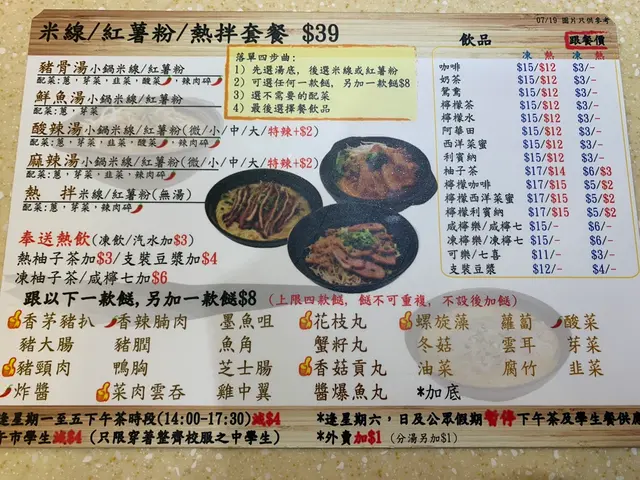 07/19 圖片只供參考
米線/紅薯粉/熱拌套餐 $39
豬骨湯小鍋米線/紅薯粉
配菜:蔥，芽菜，韭菜，酸菜，辣肉碎
鮮魚湯小鍋米線/紅薯粉
配菜:蔥，芽菜
酸辣湯小鍋米線/紅薯粉(微/小/中/大/特辣+$2)
配菜:蔥，芽菜，韭菜，酸菜，辣肉碎
麻辣湯小鍋米線/紅薯粉(微/小/中/大/特辣+$2)
配菜:蔥，芽菜，韭菜，酸菜，辣肉碎
熱 拌米線/紅薯粉(無湯)
配菜:蔥，芽菜，辣肉碎
落單四步曲:
1) 先選湯底，後選米線或紅薯粉
2) 可選任何一款餸，另加一款餸$8
3) 選不需要的配菜
4) 最後選擇餐飲品
奉送熱飲(凍飲/汽水加$3)
熱柚子茶加$3/支裝豆漿加$4
凍柚子茶/咸檸七加$6
飲品 跟餐價
凍 熱 凍 熱
咖啡 $15/$12 $3/-
奶茶 $15/$12 $3/-
鴛鴦 $15/$12 $3/-
檸檬茶 $15/$12 $3/-
檸檬水 $15/$12 $3/-
阿華田 $15/$12 $3/-
西洋菜蜜 $15/$12 $3/-
利賓納 $15/$12 $3/-
柚子茶 $17/$14 $6/$3
檸檬咖啡 $17/$15 $5/$2
檸檬西洋菜蜜 $17/$15 $5/$2
檸檬利賓納 $17/$15 $5/$2
咸檸樂/咸檸七 $15/- $6/-
凍檸樂/凍檸七 $15/- $6/-
可樂/七喜 $11/- $3/-
支裝豆漿 $12/- $4/-
跟以下一款餸,另加一款餸$8 (上限四款餸，餸不可重複，不設後加餸)
香茅豬扒 香辣腩肉 墨魚咀 花枝丸 螺旋藻 蘿蔔 酸菜
豬大腸 豬膶 魚角 蟹籽丸 冬菇 雲耳 芽菜
豬頸肉 鴨胸 芝士腸 香菇貢丸 油菜 腐竹 韭菜
炸醬 菜肉雲吞 雞中翼 醬爆魚丸 *加底
逢星期一至五下午茶時段(14:00-17:30)減$4 *逢星期六，日及公眾假期暫停下午茶及學生餐供應
午市學生減$4 (只限穿著整齊校服之中學生) *外賣加$1 (分湯另加$1)